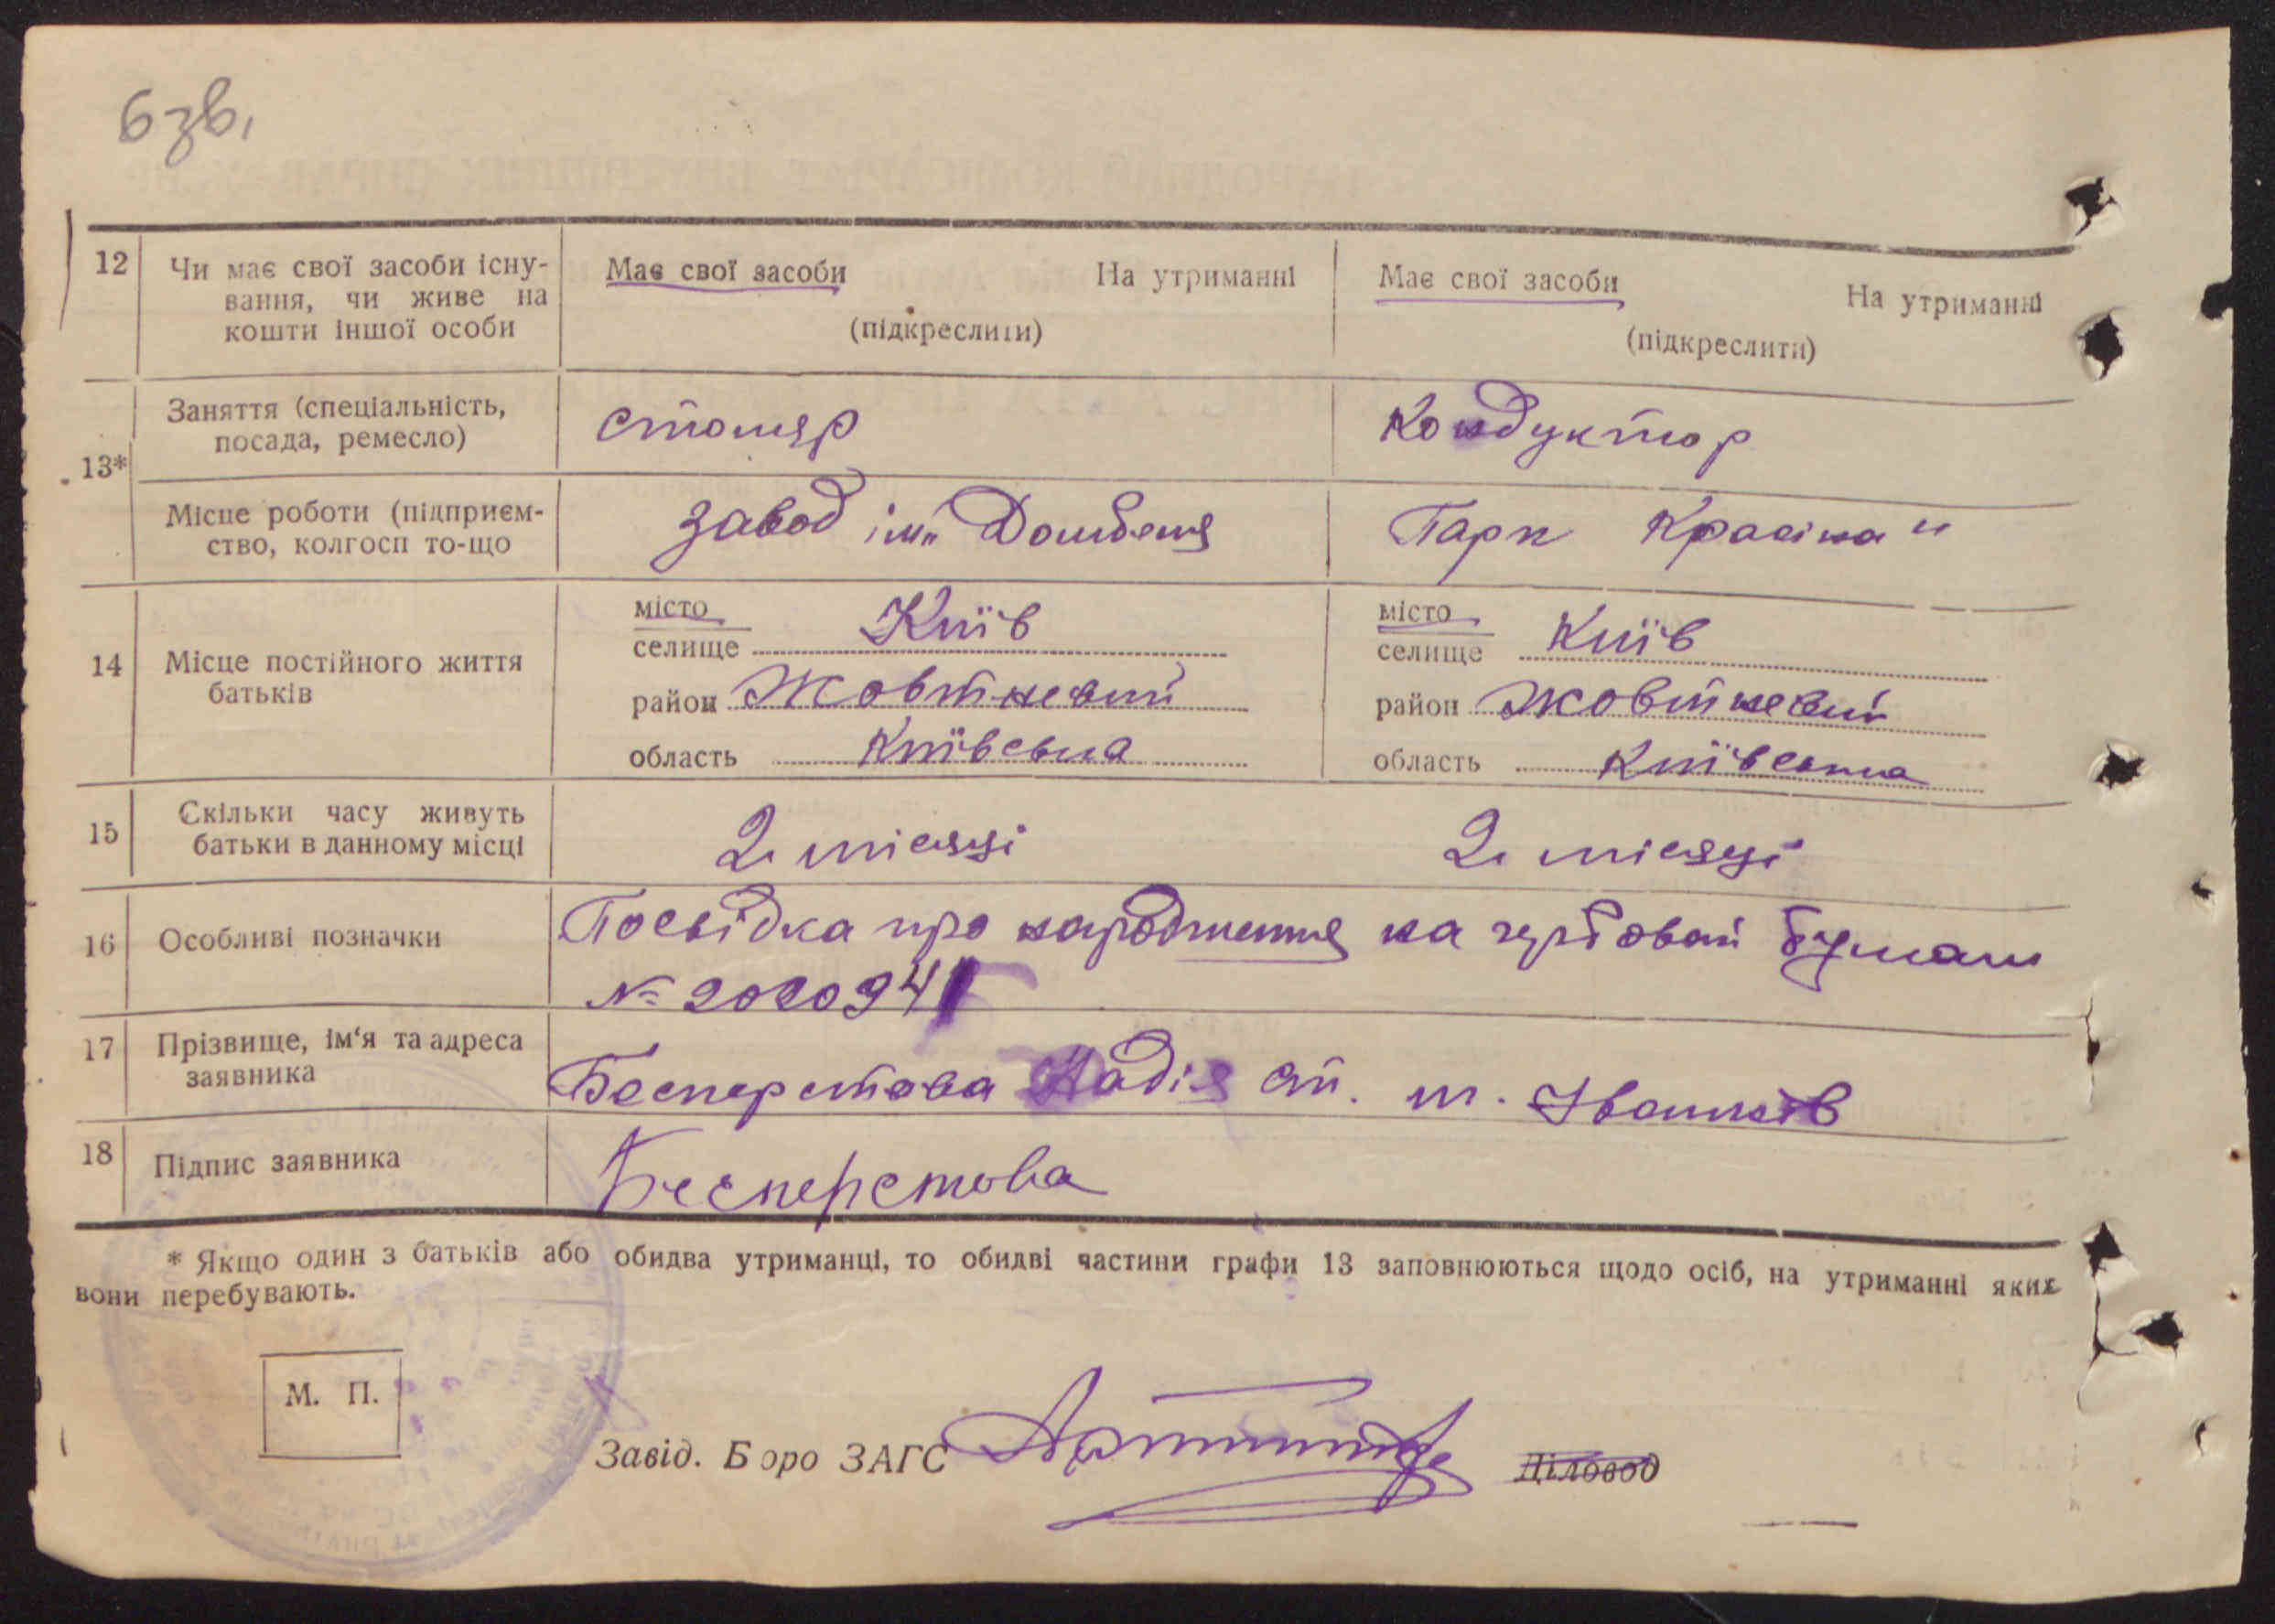 6 зв.
12 Чи має свої засоби існу- Має свої засоби На утриманні Має свої засоби На утриманні
вання, чи живе на
кошти іншої особи (підкреслити) (підкреслити)
Заняття (спеціальність, столяр Кондуктор
посада, ремесло)
13*
Місце роботи (підприєм- завод ім. Домбаля Парк Красіна"
ство, колгосп то-що
місто Київ місто Київ
селище селище
14 Місце постійного життя район Жовтневий район Жовтневий
батьків
область Київська область Київська
15 Скільки часу живуть 2 місяці 2 місяці
батьки в данному місці
16 Особливі позначки Посвідка про народження на гербовой бумаги
№ 202094
17 Прізвище, ім'я та адреса Бесперстова Надія ст. м. Іванків
заявника
18 Підпис заявника Бесперстова
* Якщо один з батьків або обидва утриманці, то обидві частини графи 13 заповнюються щодо осіб, на утриманні яких
вони перебувають.
М. П.
Завід. Бюро ЗАГС Діловод